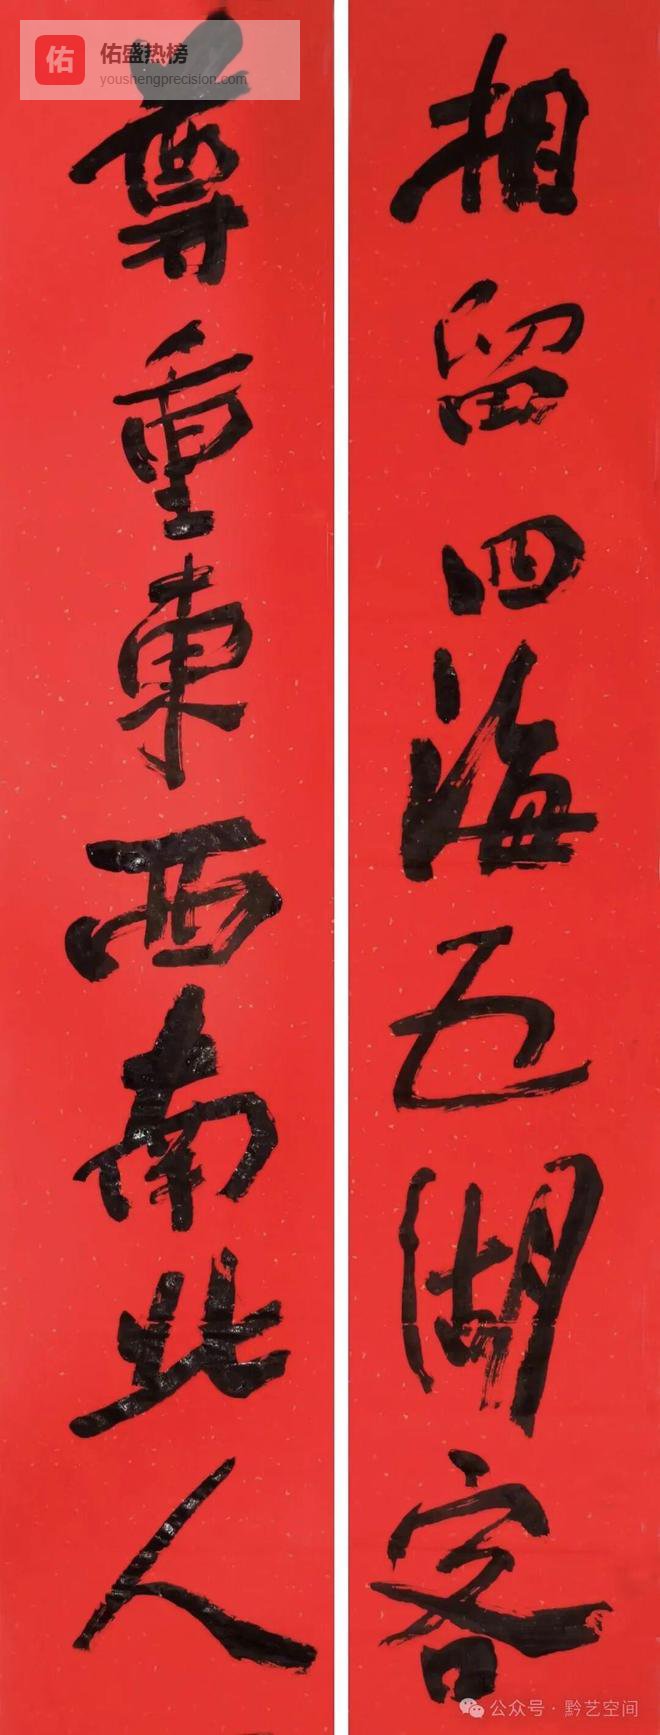 相留四海五湖客
尊重東西南北人
佑
佑盛热榜
youshengprecision.com
公众号·黔艺空间